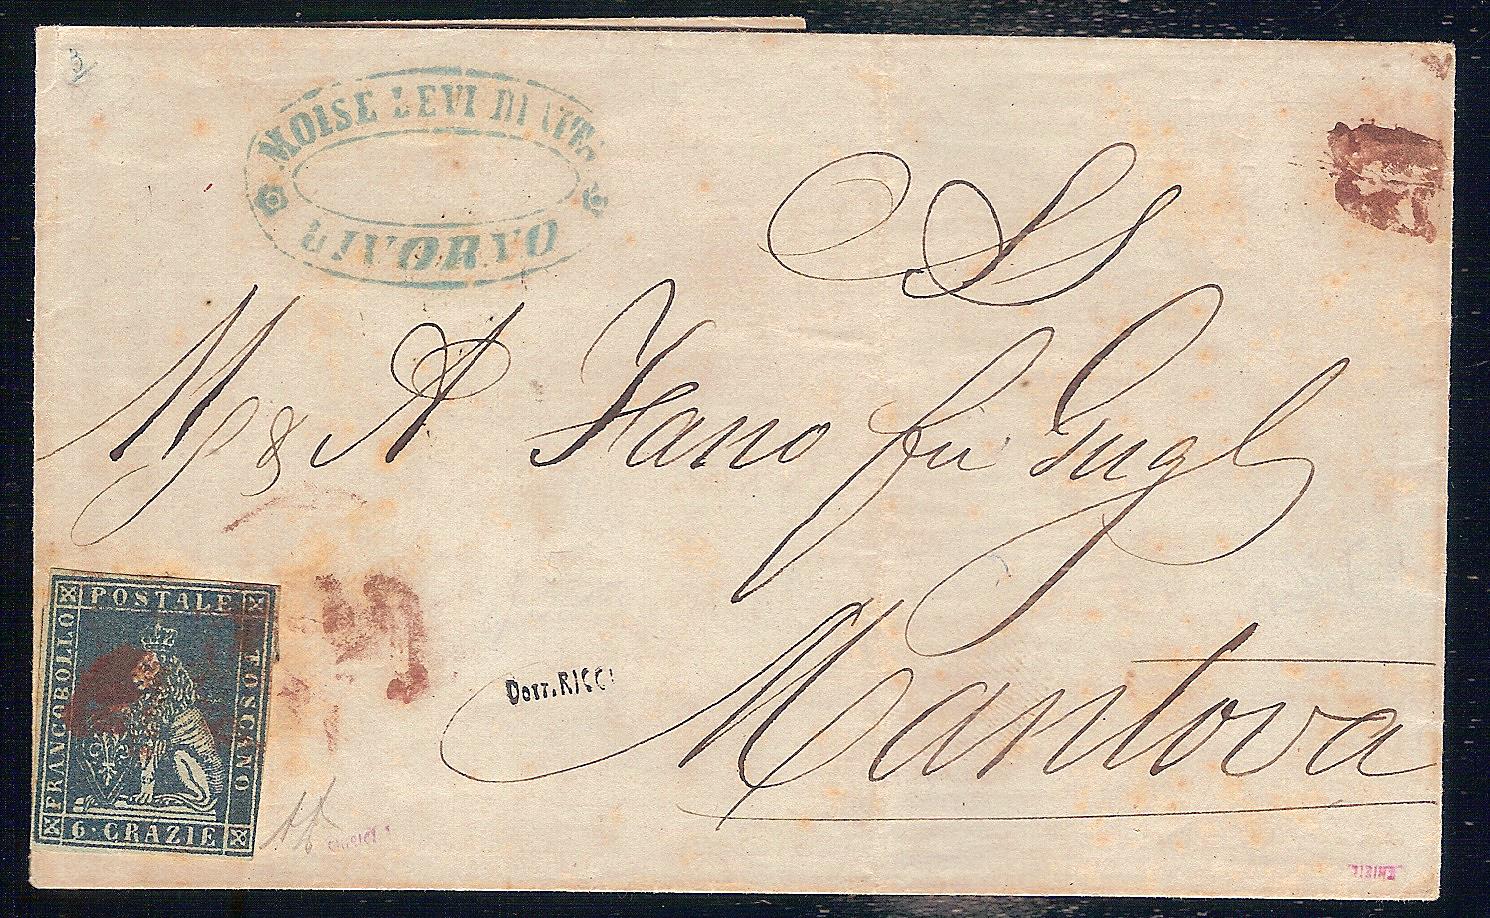 3
MOISE LEVI DI VITA
LIVORNO
SS
M & A Fano fu Gugl
Mantova
FRANCOBOLLO POSTALE TOSCANO
6·CRAZIE
Dott.RICCI